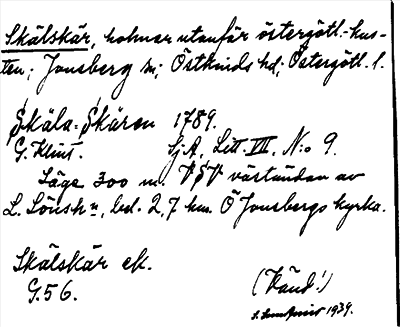 Skälskär, holmar utanför östergötl.-kus-
ten; Jonsberg sn; Östkinds hd; Östergötl. l.
Skäla-Skären 1789.
G. Klint. Sj.A, Litt. VII, N:o 9.
Läge 300 m. VSV västundan av
L. Lönsk n, bel. 2,7 km. Ö Jonsbergs kyrka.
Skälskär ek.
G.56. (Känd!)
1939.